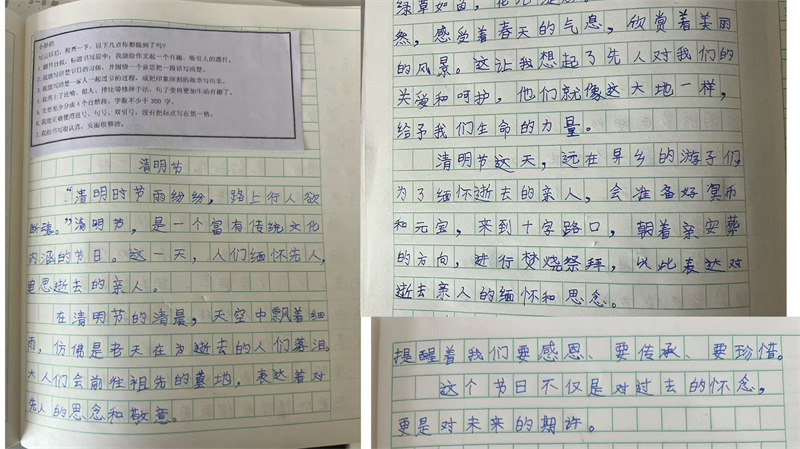 小妙招
写完以后，检查一下，以下几点你都做到了吗？
1. 题目自拟，标题书写居中：我能给作文起一个有趣、吸引人的题目。
2. 我能写清楚节日的习俗，并围绕一个意思把一段话写清楚。
3. 我能写清楚一家人一起过节的过程，或把印象深刻的故事写出来。
4. 我用上了比喻、拟人、排比等修辞手法，句子变得更加生动有趣了。
5. 文章至少分成4个自然段，字数不少于300字。
6. 我能正确使用逗号、句号、双引号，没有把标点写在第一格。
7. 我的书写很认真，页面很整洁。
清明节
“清明时节雨纷纷，路上行人欲
断魂。”清明节，是一个富有传统文化
内涵的节日。这一天，人们缅怀先人，
追思逝去的亲人。
在清明节的清晨，天空中飘着细
雨，仿佛是老天在为逝去的人们落泪。
大人们会前往祖先的墓地，表达着对
先人的思念和敬意。
绿草如茵，
然，感受着春天的气息，欣赏着美丽
的风景。这让我想起了先人对我们的
关爱和呵护，他们就像这大地一样，
给予我们生命的力量。
清明节这天，远在异乡的游子们，
为了缅怀逝去的亲人，会准备好冥币
和元宝，来到十字路口，朝着亲安葬
的方向，进行焚烧祭拜，以此表达对
逝去亲人的缅怀和思念。
提醒着我们要感恩、要传承、要珍惜。
这个节日不仅是对过去的怀念，
更是对未来的期许。